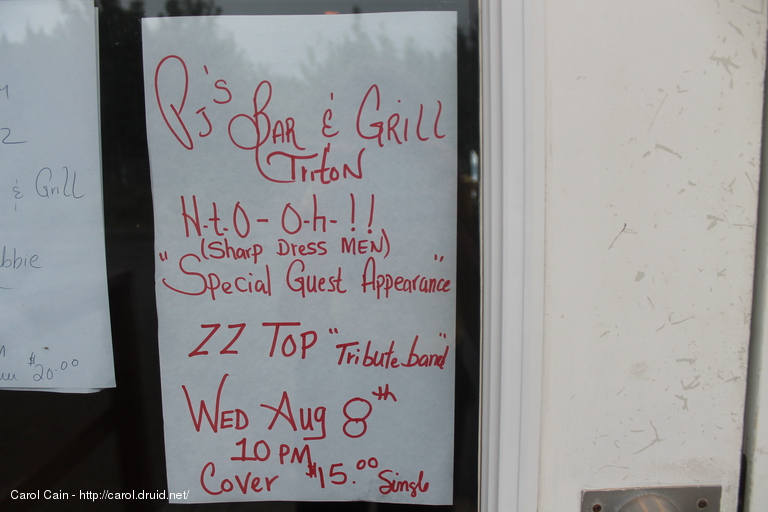 PJ's BAR & GRiLL
TritoN
H-t.O- O-h-!!
(Sharp Dress MEN)
"Special Guest Appearance"
ZZ TOP "Tribute band"
WED Aug 8th
10 PM
Cover $15.00 Single
2
& Grill
bbie
$20.00
Carol Cain - http://carol.druid.net/